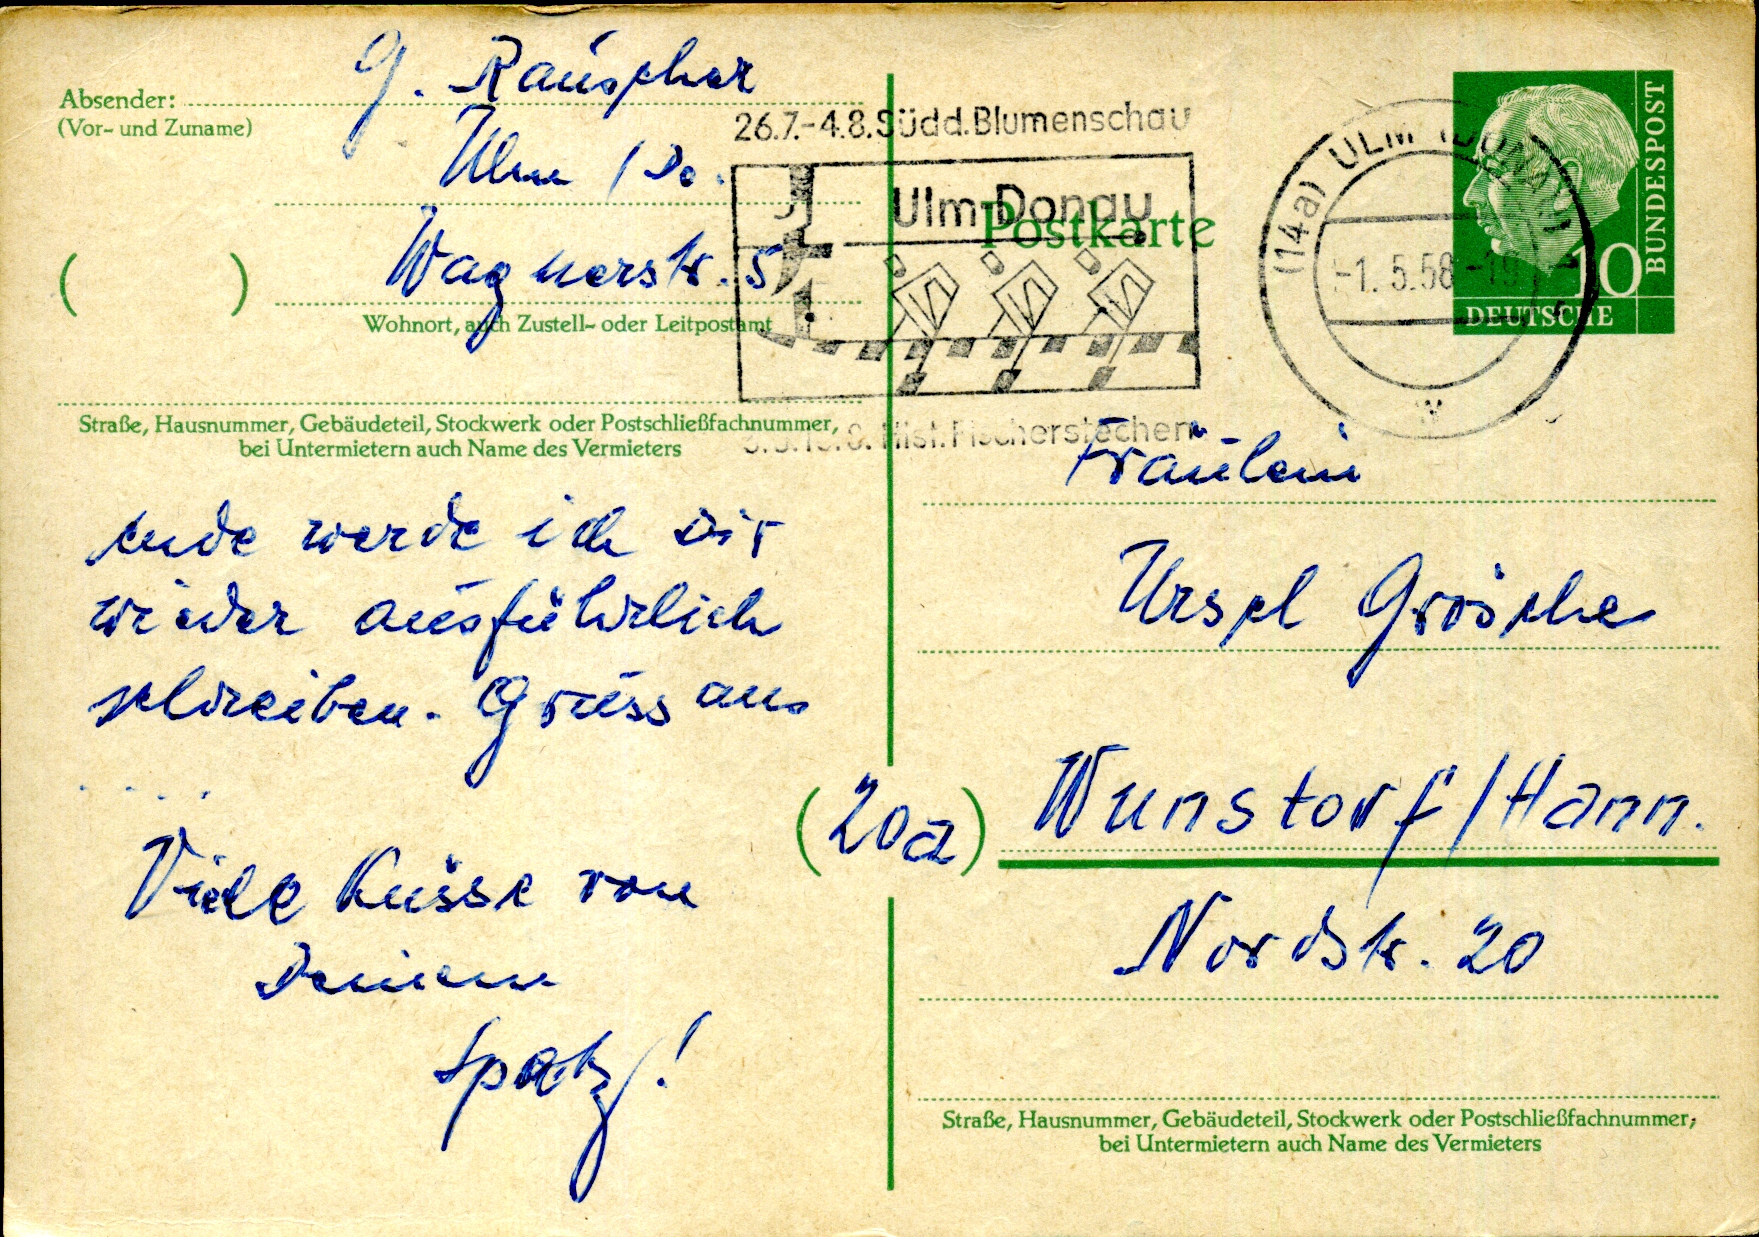 Absender:
(Vor- und Zuname)
G. Rauscher
Ulm / Do.
Wagnerstr. 5
( )
Wohnort, auch Zustell- oder Leitpostamt
Straße, Hausnummer, Gebäudeteil, Stockwerk oder Postschließfachnummer,
bei Untermietern auch Name des Vermieters
ende werde ich Dir
wieder ausführlich
schreiben. Gruss an
. . . .
Viele Küsse von
Deinem
Spatz!
26.7.-4.8. Südd. Blumenschau
Ulm-Donau
Hist. Fischerstechen
Postkarte
(14a) ULM (DONAU)
-1. 5.58-19
DEUTSCHE
BUNDESPOST
10
Fräulein
Ursel Grösche
(20a) Wunstorf / Hann.
Nordstr. 20
Straße, Hausnummer, Gebäudeteil, Stockwerk oder Postschließfachnummer,
bei Untermietern auch Name des Vermieters